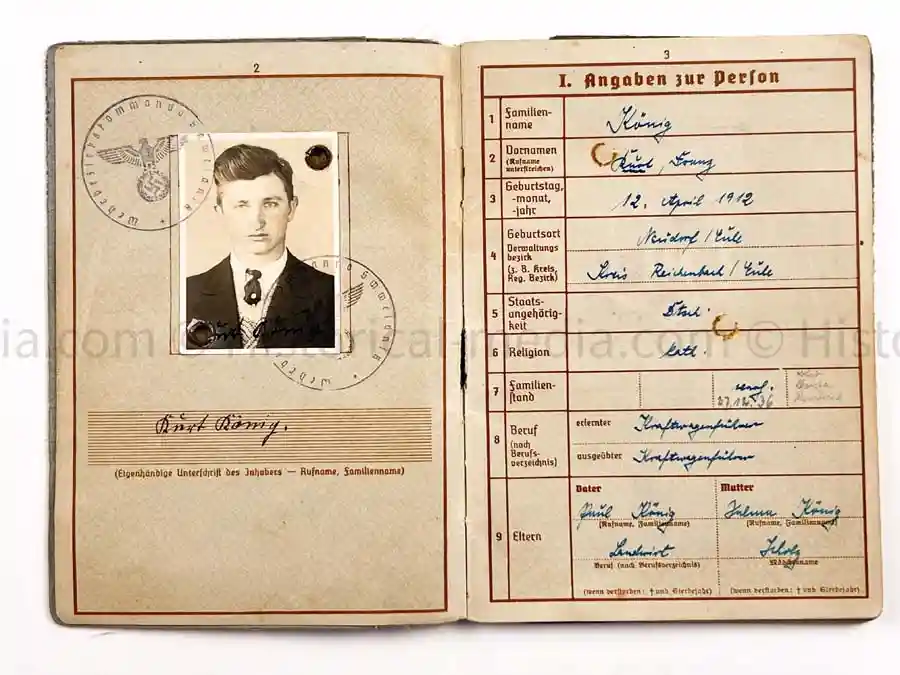 2
Wehrbezirkskommando Schweidnitz
Wehrbezirkskommando Schweidnitz
Kurt König
Kurt König.
(Eigenhändige Unterschrift des Inhabers — Rufname, Familienname)
3
I. Angaben zur Person
1 Familien-
name
König
2 Vornamen
(Rufname
unterstreichen)
Kurt, Franz
3 Geburtstag,
-monat,
-jahr
12. April 1912
4 Geburtsort
Verwaltungs
bezirk
(z. B. Kreis,
Reg. Bezirk)
Neudorf / Eule
Kreis Reichenbach / Eule
5 Staats-
angehörig-
keit
Dtsch.
6 Religion
kath.
7 Familien-
stand
verh.
27.12.36
8 Beruf
(nach
Berufs-
verzeichnis)
erlernter Kraftwagenführer
ausgeübter Kraftwagenführer
9 Eltern
Vater
Paul König
(Rufname, Familienname)
Landwirt
Beruf (nach Berufsverzeichnis)
(wenn verstorben: † und Sterbejahr)
Mutter
Helma König
(Rufname, Familienname)
Scholz
Mädchenname
(wenn verstorben: † und Sterbejahr)
ia.com © Historical-media.com © Histo